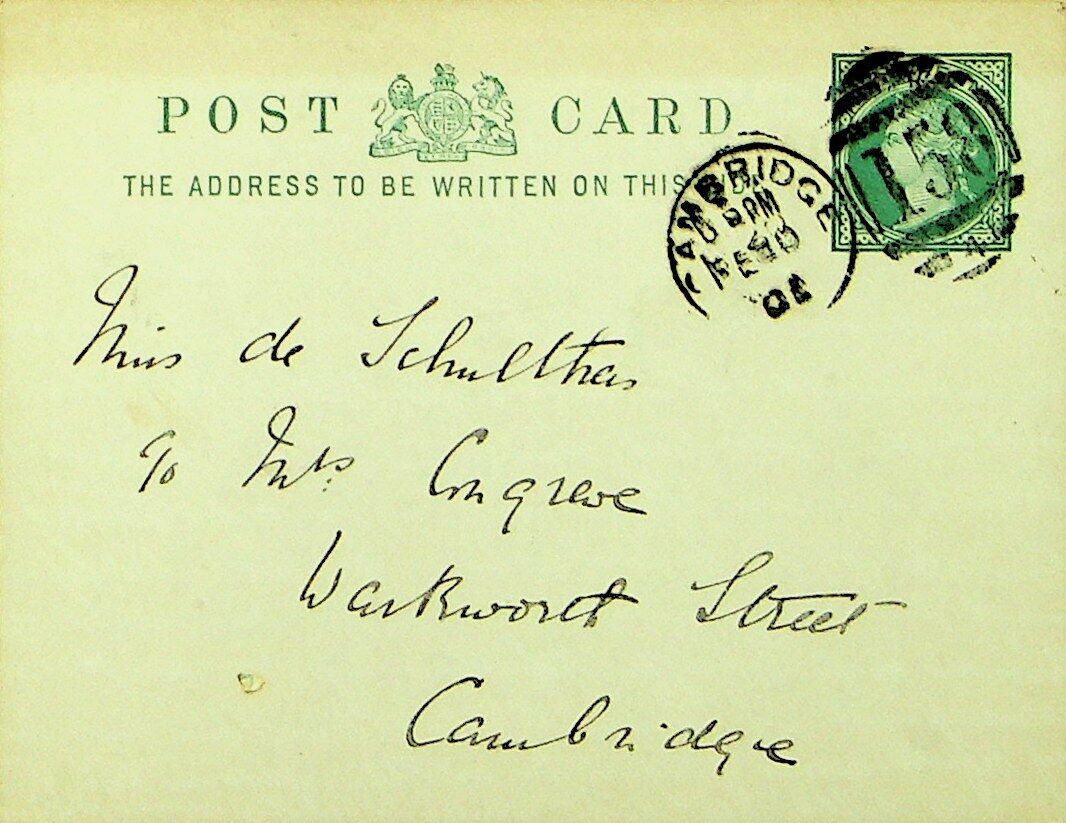 POST CARD
THE ADDRESS TO BE WRITTEN ON THIS
CAMBRIDGE
PM
158
Miss de Schulthas
c/o Mrs. Congreve
Warkworth Street
Cambridge